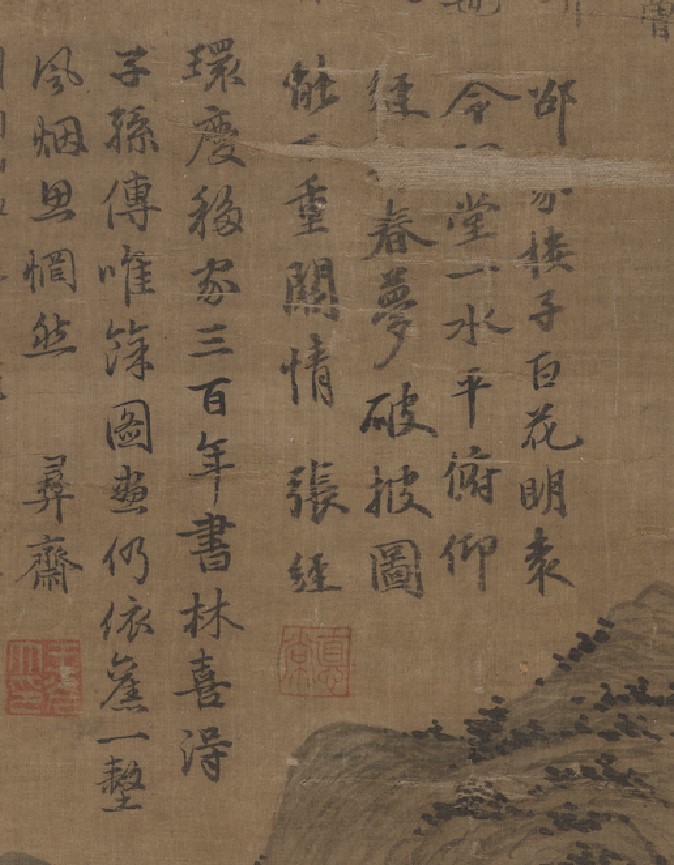 邵家楼子百花明袁
令堂一水平俯仰
經春夢破披圖
能不重關情 張經
環慶移家三百年書林喜得
子孫傳唯餘圖畫仍依舊一壑
風烟思惘然 彝齋